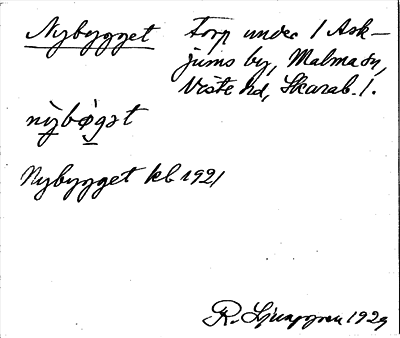 Nybygget torp under 1 Ask-
jums by, Malma sn,
Viste hd, Skarab. l.
nỳbø̀gət
Nybygget kb 1921
R. Ljunggren 1929